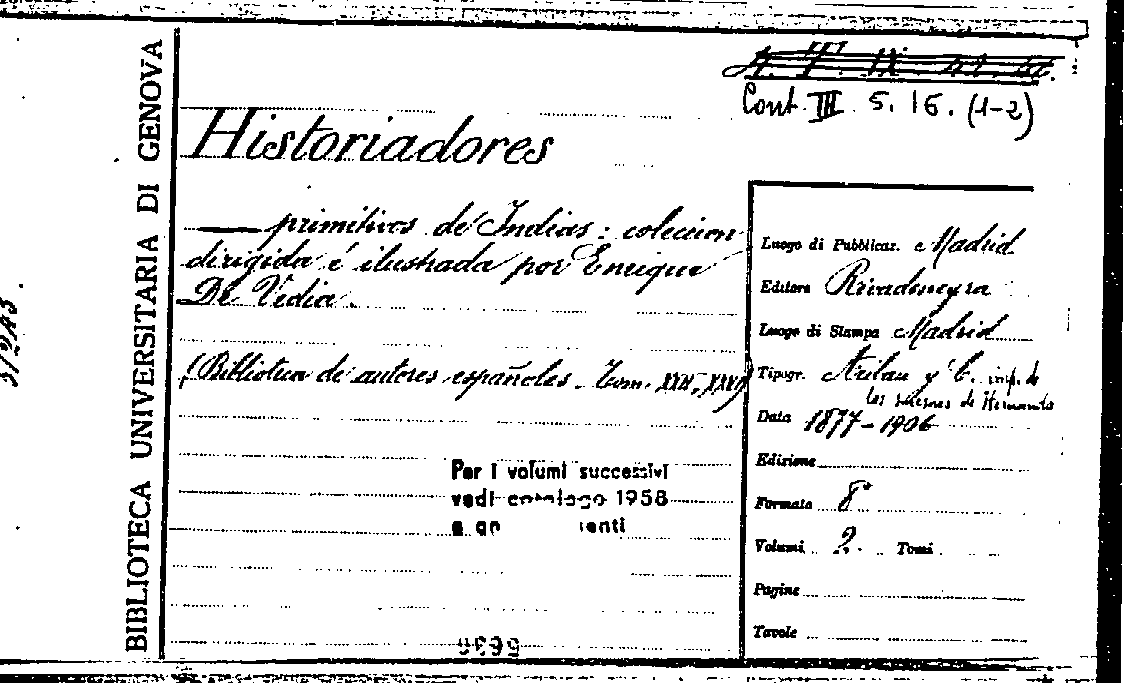 BIBLIOTECA UNIVERSITARIA DI GENOVA
Cont. III. 5. 16. (1-2)
Historiadores
— primitivos de Indias: coleccion
dirigida é ilustrada por Enrique
De Vedia.
(Biblioteca de autores españoles. Tom. XXII, XXVI)
Per i volumi successivi
vedi catalogo 1958
Luogo di Pubblicaz. Madrid
Editore Rivadeneyra
Luogo di Stampa Madrid
Tipogr. Aribau y C. imp. de
los sucesores de Hernando
Data 1877-1906
Edizione
Formato 8°
Volumi 2. Tomi
Pagine
Tavole